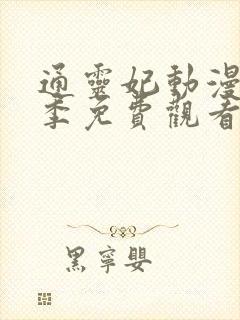 通靈妃動漫
季免費觀看
黑寧嬰